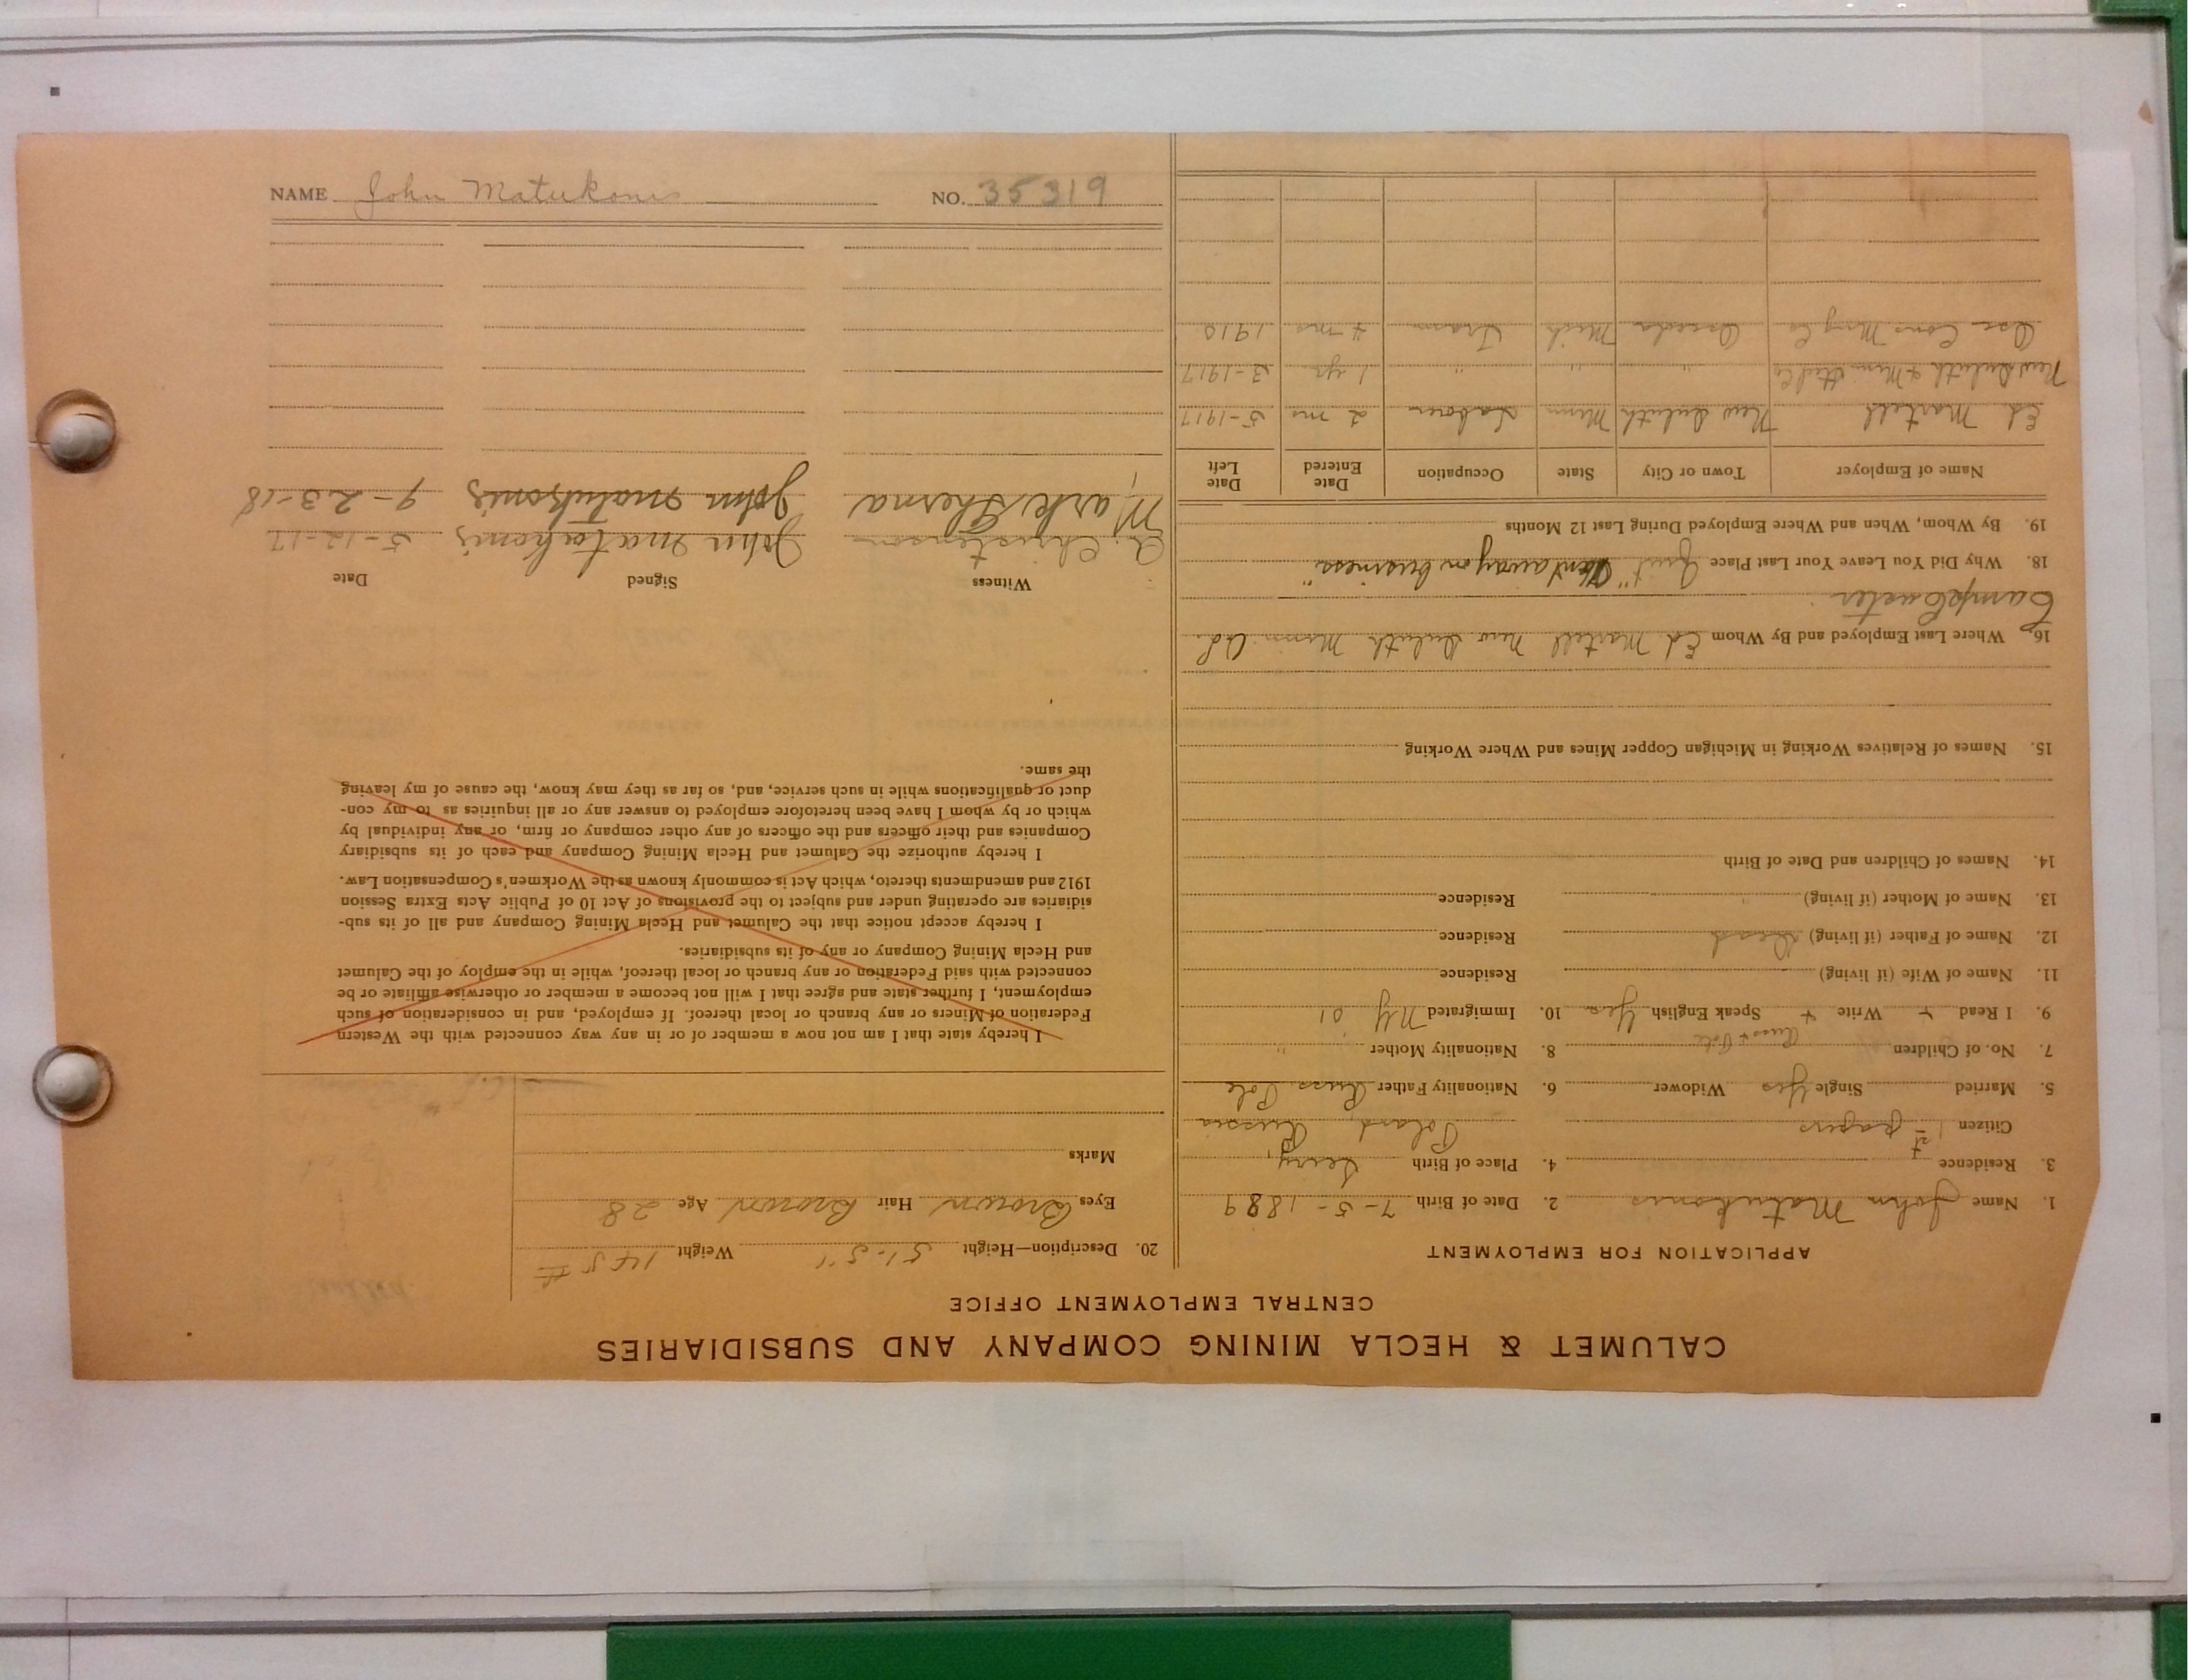 CALUMET & HECLA MINING COMPANY AND SUBSIDIARIES
CENTRAL EMPLOYMENT OFFICE
APPLICATION FOR EMPLOYMENT
1. Name John Matukonis 2. Date of Birth 7-5-1889
3. Residence 4. Place of Birth
Citizen 1st papers Poland, Russia
5. Married Single Yes Widower 6. Nationality Father Russ Pole
7. No. of Children 8. Nationality Mother "
Russ + Pole
9. I Read + Write + Speak English Yes 10. Immigrated NY 01
11. Name of Wife (if living) Residence
12. Name of Father (if living) Dead Residence
13. Name of Mother (if living) " Residence
14. Names of Children and Date of Birth
15. Names of Relatives Working in Michigan Copper Mines and Where Working
16. Where Last Employed and By Whom Ed Martell New Duluth Minn
18. Why Did You Leave Your Last Place Quit "Went away on business"
19. By Whom, When and Where Employed During Last 12 Months
Name of Employer Town or City State Occupation Date Entered Date Left
Ed Martell New Duluth Minn Laborer 2 ms 5-1917
New Duluth & Minn Steel Co " " " 1 yr 3-1917
Osc Cons Mng Co Osceola Mich Tram 4 ms 1910
20. Description—Height 5'-5" Weight 145 #
Eyes Brown Hair Brown Age 28
Marks
I hereby state that I am not now a member of or in any way connected with the Western
Federation of Miners or any branch or local thereof. If employed, and in consideration of such
employment, I further state and agree that I will not become a member or otherwise affiliate or be
connected with said Federation or any branch or local thereof, while in the employ of the Calumet
and Hecla Mining Company or any of its subsidiaries.
I hereby accept notice that the Calumet and Hecla Mining Company and all of its sub-
sidiaries are operating under and subject to the provisions of Act 10 of Public Acts Extra Session
1912 and amendments thereto, which Act is commonly known as the Workmen's Compensation Law.
I hereby authorize the Calumet and Hecla Mining Company and each of its subsidiary
Companies and their officers and the officers of any other company or firm, or any individual by
which or by whom I have been heretofore employed to answer any or all inquiries as to my con-
duct or qualifications while in such service, and, so far as they may know, the cause of my leaving
the same.
Witness Signed Date
A. Christenson John Matukonis 5-12-17
Mark John Matukonis 9-23-18
NAME John Matukonis NO. 35319